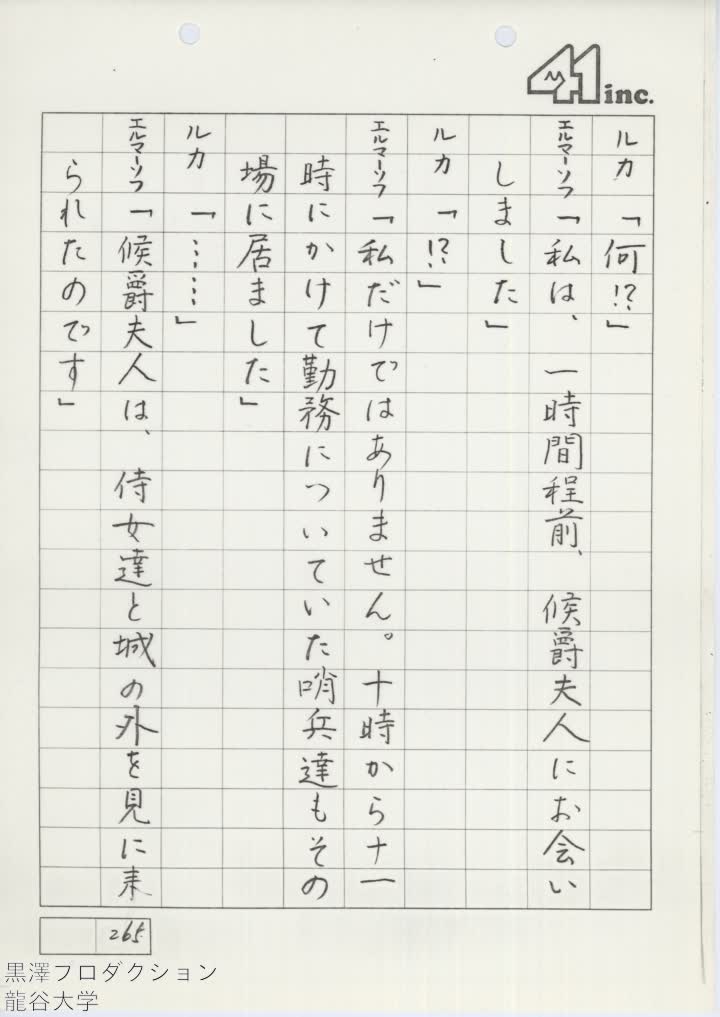 41 inc.
ルカ「何!?」
エルマーソフ「私は、一時間程前、候爵夫人にお会い
しました」
ルカ「!?」
エルマーソフ「私だけではありません。十時から十一
時にかけて勤務についていた哨兵達もその
場に居ました」
ルカ「……」
エルマーソフ「候爵夫人は、侍女達と城の外を見に来
られたのです」
265
黒澤フロダクション
龍谷大学